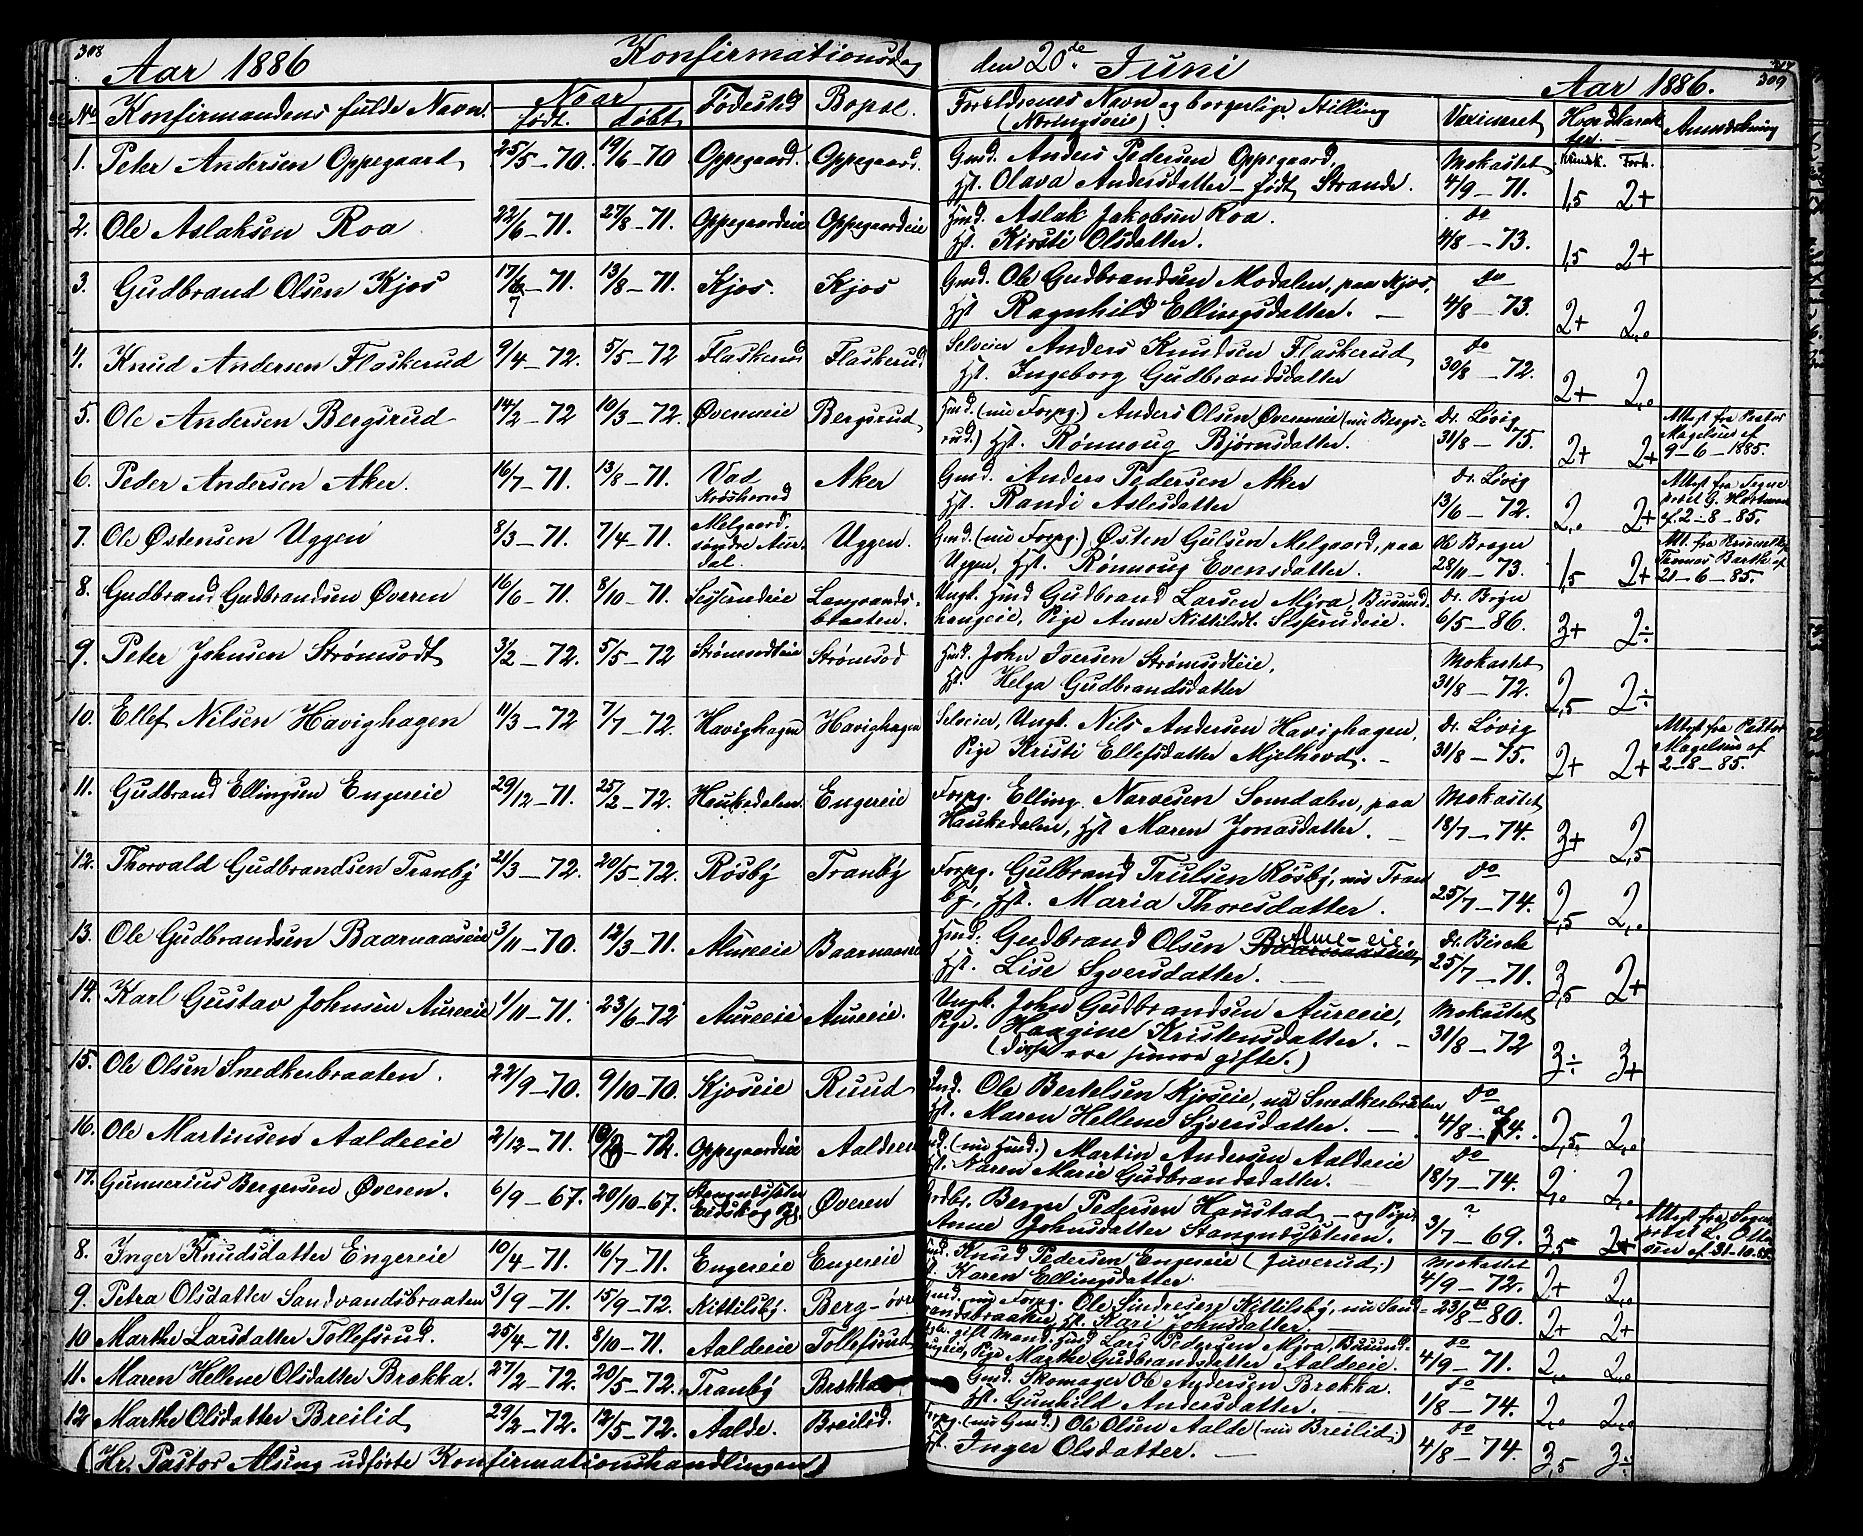 308
Aar 1886 Konfirmationsdag den 20de Juni Aar 1886. 309
No Konfirmandens fulde Navn. Naar født. døbt. Fødested Bopæl. Forældrenes Navn og borgerlige Stilling (Næringsveie). Vaccineret Hovedkarakter. Kundsk. Forh. Anmerkning
1. Peter Andersen Oppegaard 25/5-70. 19/6-70 Oppegaard. Oppegaard. Gmd. Anders Pedersen Oppegaard, Mokastet
Hst. Olava Andersdatter - født Strande. 4/9-71. 1,5 2+
2. Ole Aslaksen Roa 22/6-71. 27/8-71. Oppegaardeie Oppegaardeie Hmd. Aslak Jakobsen Roa. do
Hst. Kirsti Olsdatter. 4/8-73. 1,5 2+
3. Gudbrand Olsen Kjos 17/7-71. 13/8-71. Kjos. Kjos Gmd. Ole Gudbrandsen Modalen, paa Kjos, do
Hst Ragnhild Ellingsdatter. 4/8-73. 2+ 2,0
4. Knud Andersen Flaskerud 9/4-72. 5/5-72 Flaskerud Flaskerud. Selveier Anders Knudsen Flaskerud do
Hst. Ingeborg Gudbrandsdatter 30/8-72. 2+ 2,0
5. Ole Andersen Bergsrud 14/2-72 10/3-72. Øverneie Bergsrud Hmd. (nu Forpg.) Anders Olsen Øverneie (nu Bergs- dr. Løvig
rud.) Hst. Rønnoug Bjørnsdatter. 31/8-75. 2+ 2+ Attest fra Pastor Magelsen af 9-6-1885.
6. Peder Andersen Aker. 16/7-71. 13/8-71. Vad Krødsherred Aker Gmd. Anders Pedersen Aker dr. Løvig
Hst. Randi Aslesdatter 13/6-72. 2,0 2+ Attest fra Sogneprest G. Hartman af 2-8-85.
7. Ole Østensen Uggen 8/3-71. 7/4-71. Melgaard. søndre Aurdal. Uggen. Gmd. (nu Forpg.) Østen Gulsen Melgaard, paa Ole Brager
Uggen, Hst. Rønnoug Evensdatter. 28/11-73. 1,5 2+ Att. fra Thomas Barth af 21-6-85.
8. Gudbrand Gudbrandsen Øveren 16/6-71. 8/10-71. braaten. Ungk. Hmd Gudbrand Larsen Myra, Busund- dr. Bryn
Pige Anne Kittilsdt. 6/5-86. 3+ 2÷
9. Peter Johnsen Strømsodt 3/2-72. 5/5-72 Strømsodteie Strømsod Hmd. John Iversen Strømsodteie, Mokastet
Hst. Helga Gudbrandsdatter 31/8-72. 2,5 2÷
10. Ellef Nilsen Havighagen 11/3-72 7/7-72. Havighagen Havighagen Selveier, Ungk. Nils Andersen Havighagen, dr. Løvig
Pige Kristi Ellefsdatter Mjelhovd. - 31/8-75. 2+ 2+ Attest fra Pastor Magelsen af 2-8-85.
11. Gudbrand Ellingsen Engereie 29/12-71. 25/2-72. Haukedalen. Engereie Forpg. Elling Narvesen Somdalen, paa Mokastet
Haukedalen, Hst Maren Jonasdatter. 18/7-74. 3+ 2,5
12. Thorvald Gudbrandsen Tranby 21/3-72. 20/5-72. Røsby Tranby Forpg. Gulbrand Trulsen Røsby, nu Tran do
by, Hst. Maria Thoresdatter. 25/7-74. 2,5 2,0
13. Ole Gudbrandsen Baarnaaseie 3/11-70. 12/3-71. Almeeie Baarnaaseie Hmd. Gudbrand Olsen Alme-eie. dr. Birch
Hst. Lise Syversdatter. 25/7-71. 3,5 2+
14. Karl Gustav Johnsen Aureeie 1/11-71. 23/6-72 Aureeie Aureeie. Ungk. John Gudbrandsen Aureeie, Mokastet
Pige. Haagine Kristensdatter. - 31/8-72
(disse ere gifte.) 3÷ 3+
15. Ole Olsen Snedkerbraaten. 22/9-70. 9/10-70. Kjoseie Ruud Ind. Ole Bertelsen Kjoseie, nu Snedkerbraaten do
Hst. Maren Hellene Syversdatter. 4/8-74. 2,5. 2,0
16. Ole Martinsen Aaldreie 2/12-71. -72. Oppegaardeie Aaldreie (nu Hmd.) Martin Andersen Aaldreie do
Hst. Karen Marie Gudbrandsdatter. 18/7-74. 2,0 2,0
17. Gunnerius Bergersen Øveren. 6/9-67. 20/10-67. Eidskog Pg. Øveren Berger Pedersen Haustad - og Pige ?
Anne Johnsdatter 3/7-69. 3,5 2+ Attest fra Sogneprest af 31-10-
8. Inger Knudsdatter Engereie 10/4-71. 16/7-71. Engereie Engereie Knud Pedersen Engereie (Juverud.) Mokastet
Hst. Karen Ellingsdatter 4/9-72. 2+ 2,0
9. Petra Olsdatter Sandvandsbraaten 3/9-71. 15/9-72. Kittilsby. Berg-øvre Gmd. nu Forpg. Ole Sindresen Kittilsby, nu Sand-
vandsbraaten Hst. Kari Johnsdatter. 23/8-80. 2+ 2+
10 Marthe Larsdatter Tollefsrud. 25/4-71. 8/10-71. Aaldreie Tollefsrud gift Mand. Hmd Lars Pedersen Myra, Busund- do
Pige Marthe Gudbrandsdatter Aaldreie. 4/9-71. 2,0 2,0
11. Maren Hellene Olsdatter Brækka. 27/2-72. 20/5-72. Tranby Brækka Gmd. Skomager Ole Andersen Brækka. do
Hst. Gunhild Andersdatter. 1/8-74. 2,0 2,0
12 Marthe Olsdatter Breilid 29/2-72. 12/5-72. Aalde. Breilid. Forpg. (nu Gmd.) Ole Olsen Aalde (nu Breilid.) do
Hst. Inger Olsdatter. 4/8-74. 3,5 3÷
(Hr. Pastor Alsing udførte Konfirmationshandlingen)